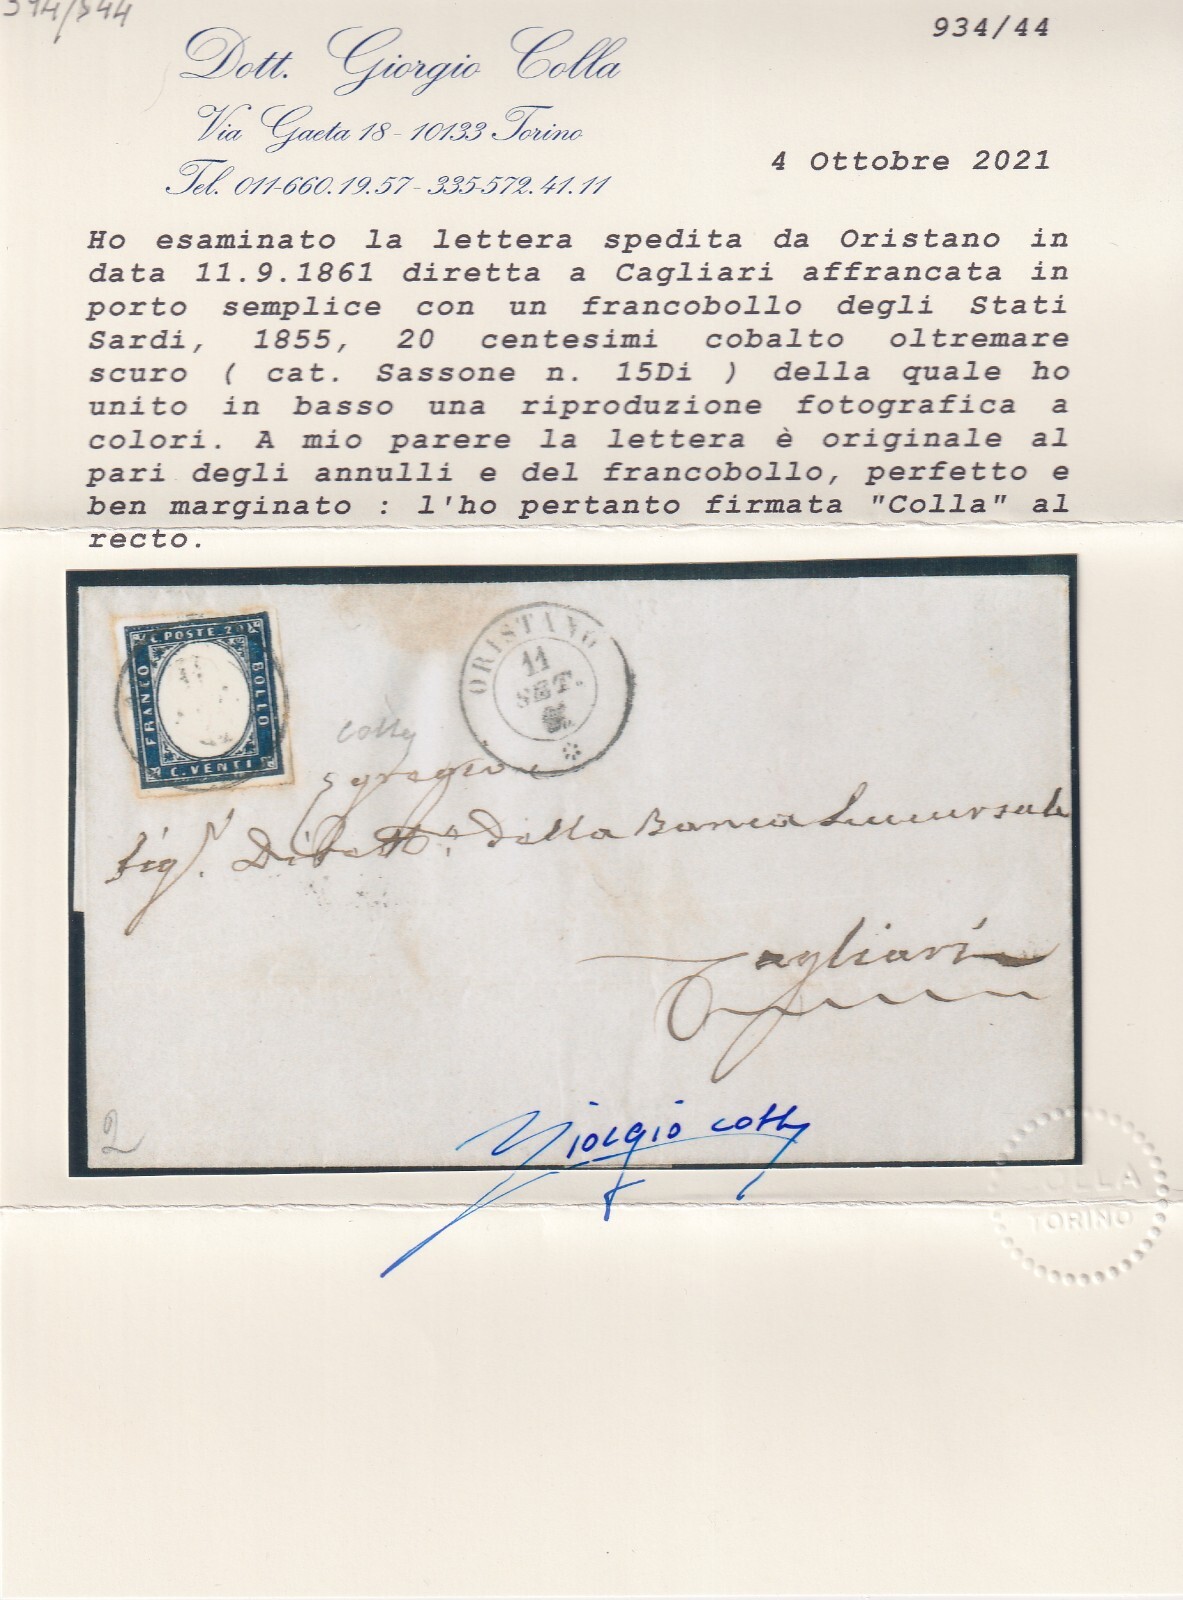 934/44
Dott. Giorgio Colla
Via Gaeta 18 - 10133 Torino
Tel. 011-660.19.57 - 335-572.41.11
4 Ottobre 2021
Ho esaminato la lettera spedita da Oristano in
data 11.9.1861 diretta a Cagliari affrancata in
porto semplice con un francobollo degli Stati
Sardi, 1855, 20 centesimi cobalto oltremare
scuro ( cat. Sassone n. 15Di ) della quale ho
unito in basso una riproduzione fotografica a
colori. A mio parere la lettera è originale al
pari degli annulli e del francobollo, perfetto e
ben marginato : l'ho pertanto firmata "Colla" al
recto.
C. POSTE 20
FRANCO
BOLLO
C. VENTI
ORISTANO
11
SET.
Colla
Sig.r Dirett.e della Banca Succursale
Cagliari
2
Giorgio Colla
COLLA
TORINO